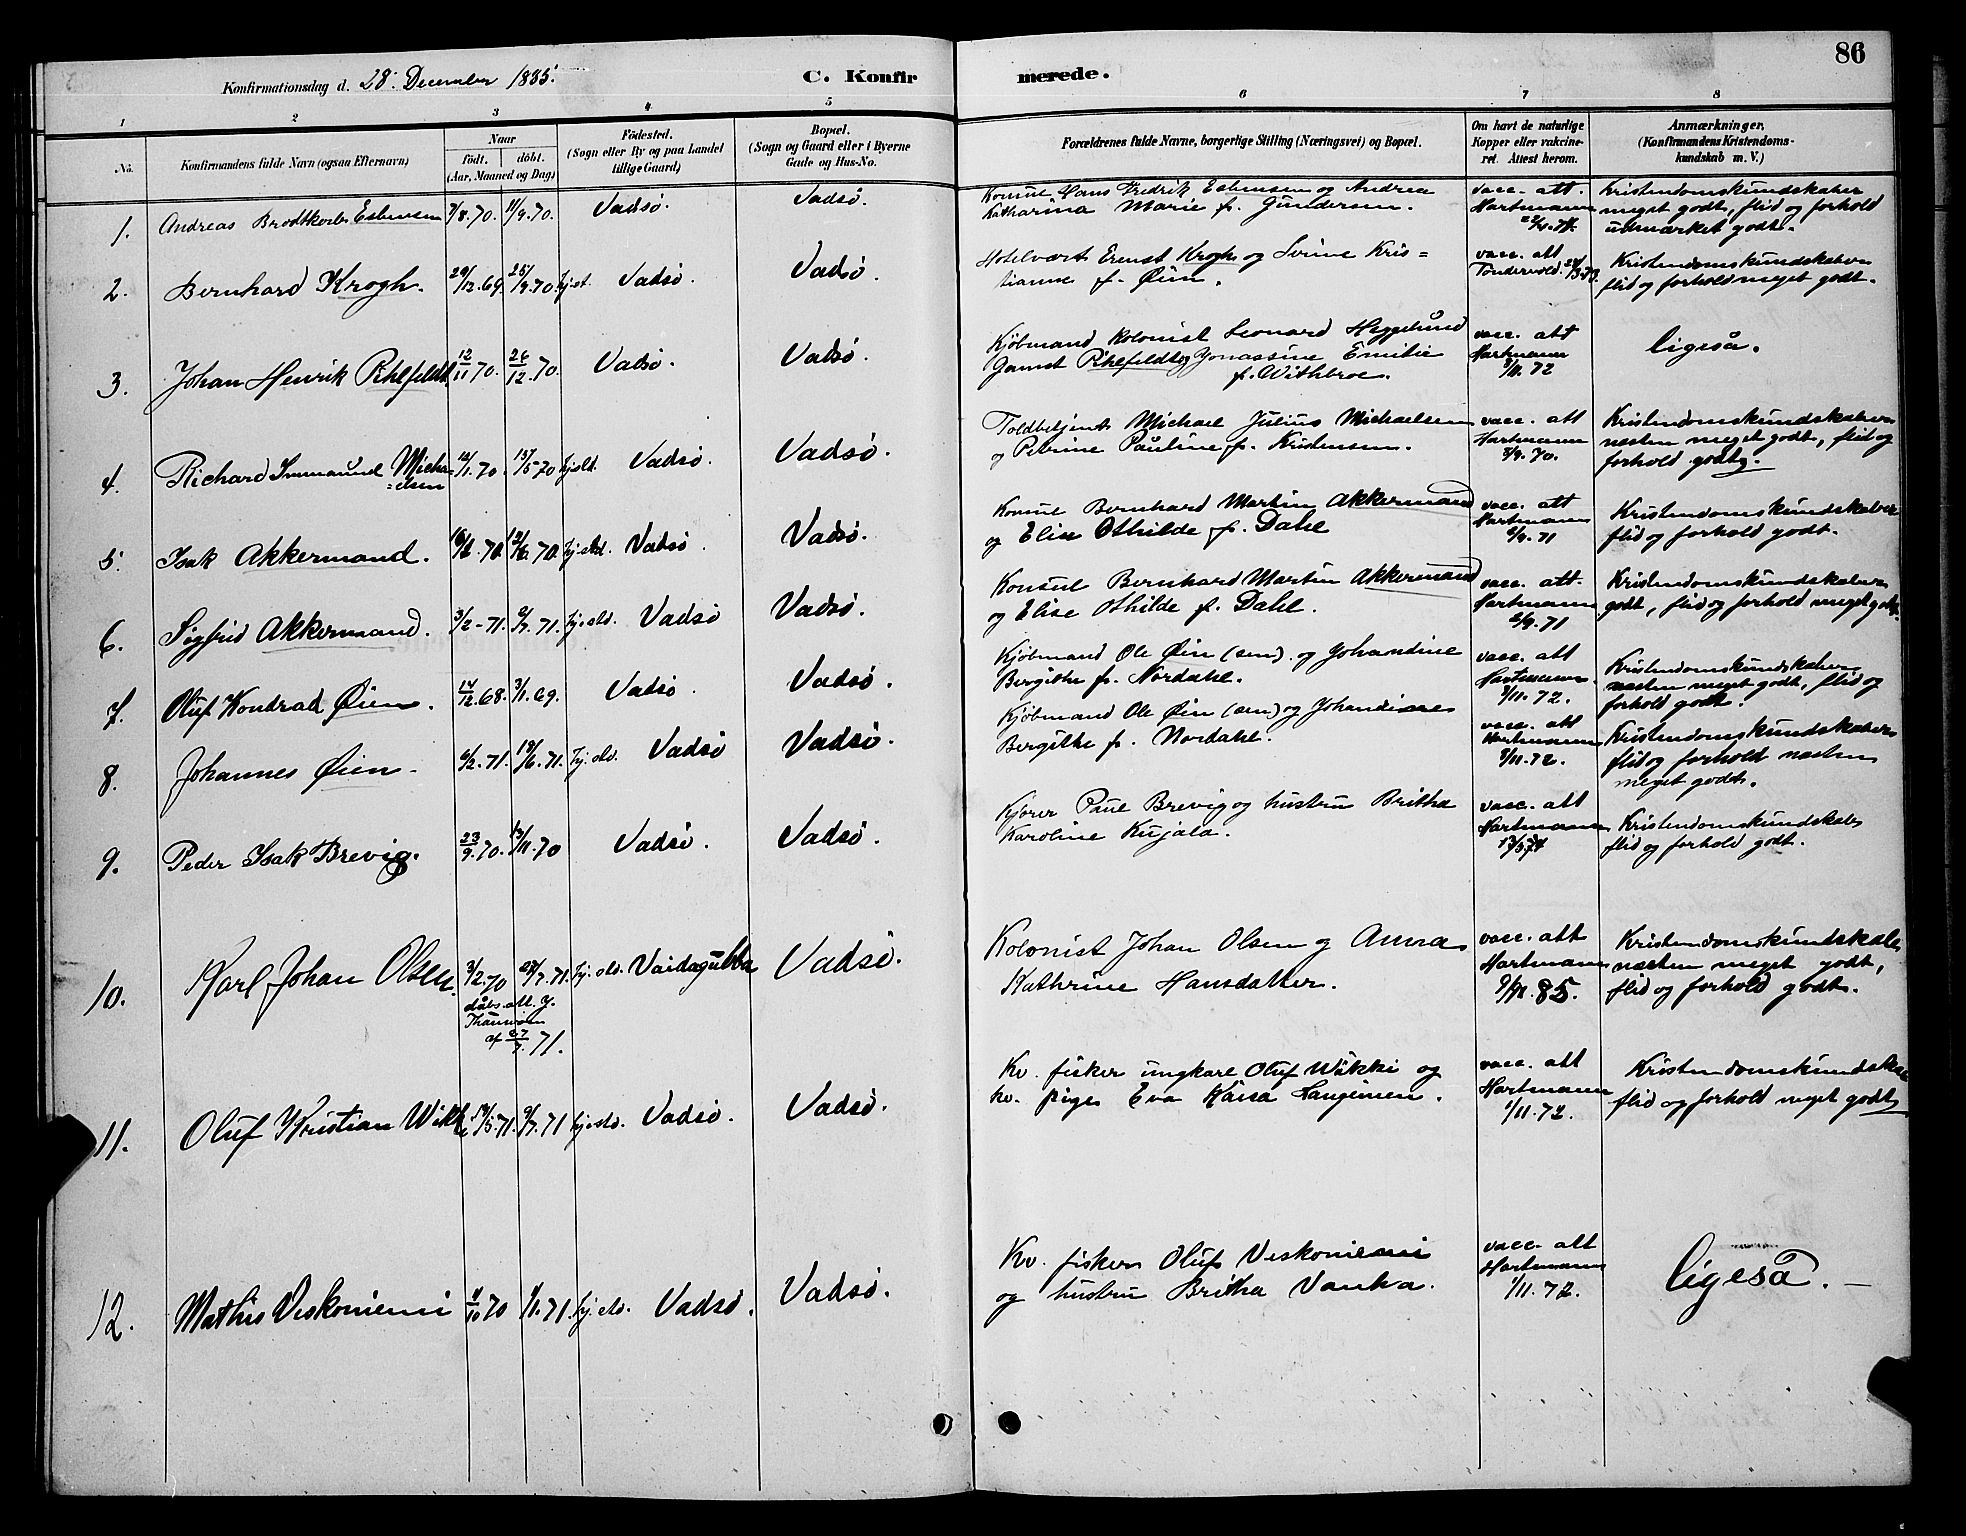 86
Konfirmationsdag d. 28. December 1885.
C. Konfirmerede.
1 2 3 4 5 6 7 8
No.
Konfirmandens fulde Navn (ogsaa Efternavn)
Naar
født. døbt.
(Aar, Maaned og Dag)
Fødested.
(Sogn eller By og paa Landet
tillige Gaard)
Bopæl.
(Sogn og Gaard eller i Byerne
Gade og Hus-No.
Forældrenes fulde Navne, borgerlige Stilling (Næringsvei) og Bopæl.
Om havt de naturlige
Kopper eller vakcine-
ret. Attest herom.
Anmærkninger.
(Konfirmandens Kristendoms-
kundskab m. V.)
1. Andreas Brodtkorb Esbensen 7/8.70. 11/9.70. Vadsø. Vadsø.
Konsul Hans Fredrik Esbensen og Andrea
Katharina Marie f. Gundersen.
vacc. att.
Hartmann
Kristendomskundskaber
meget godt, flid og forhold
udmærket godt.
2. Bernhard Krogh. 29/12.69. 25/9.70. Vadsø. Vadsø.
Hotelvært Ernst Krogh og Serine Kris=
tianne f. Øien.
vacc. att
Kristendomskundskaber
flid og forhold meget godt.
3. Johan Henrik Rihfeldt 12/11 70. 26/12.70. Vadsø. Vadsø.
Kjøbmand kolonist Leonard Heggelund
Gamst Rihfeldt og Jonassine Emilie
f. Withbroe.
vacc. att
Hartmann
/11.72
ligeså.
4. Richard Immanuel Micha=
elsen 12/1.70 15/5.70 hj. dbt. Vadsø. Vadsø.
Toldbetjent Michael Julius Michaelsen
og Petrine Pauline f. Kristensen.
vacc. att
Hartmann
/9.70.
Kristendomskundskaber
næsten meget godt, flid og
forhold godt.
5. Isak Akkermand. Vadsø. Vadsø.
Konsul Bernhard Martin Akkermand
og Elise Othilde f. Dahl
vacc. att
Hartmann
/9.71
Kristendomskundskaber
flid og forhold godt.
6. Sigfrid Akkermand. 3/2.71. 2/7.71. hj. dbt. Vadsø Vadsø.
Konsul Bernhard Martin Akkermand
og Elise Othilde f. Dahl.
vacc. att.
Hartmann
/9.71
Kristendomskundskaber
godt, flid og forhold meget godt.
7. Oluf Kondrad Øien. 14/12.68. 3/1.69. Vadsø. Vadsø.
Kjøbmand Ole Øien (sen). og Johandine
Bergithe f. Nordahl.
vacc. att
Hartmann
/11.72.
Kristendomskundskaber
næsten meget godt, flid og
forhold godt.
8. Johannes Øien. 6/2.71. 18/6.71. hj. dbt. Vadsø Vadsø.
Kjøbmand Ole Øien (sen) og Johandine
Bergithe f. Nordahl.
vacc. att
Hartmann
/11.72.
Kristendomskundskaber
flid og forhold næsten
meget godt.
9. Peder Isak Brevig. 23/9.70. 13/11.70 Vadsø. Vadsø.
Kjører Paul Brevig og hustru Britha
Karoline Kujala.
vacc. att
Hartmann
Kristendomskundskaber
flid og forhold godt.
10. Karl Johan Olsen. 3/2.70 27/7.71. hj. dbt. Vaidagubba Vadsø.
dåbs. att.
af 27/7.71.
Kolonist Johan Olsen og Anna
Kathrine Hansdatter.
vacc. att
Hartmann
9/11.85.
Kristendomskundskaber
næsten meget godt,
flid og forhold godt.
11. Oluf Kristian Wikki 19/5.71. 9/7.71 hj. dbt. Vadsø. Vadsø.
Kv. fisker ungkarl Oluf Wikki og
kv. pige Eva Kaisa Langinen.
vacc. att
Hartmann
1/11.72.
Kristendomskundskaber
flid og forhold meget godt
12. Mathis Veskoniemi 4/10 70 1/1.71. hj. dbt. Vadsø. Vadsø.
Kv. fisker Oluf Veskoniemi
og hustru Britha Vanha.
vacc. att
Hartmann
1/11.72.
ligeså.